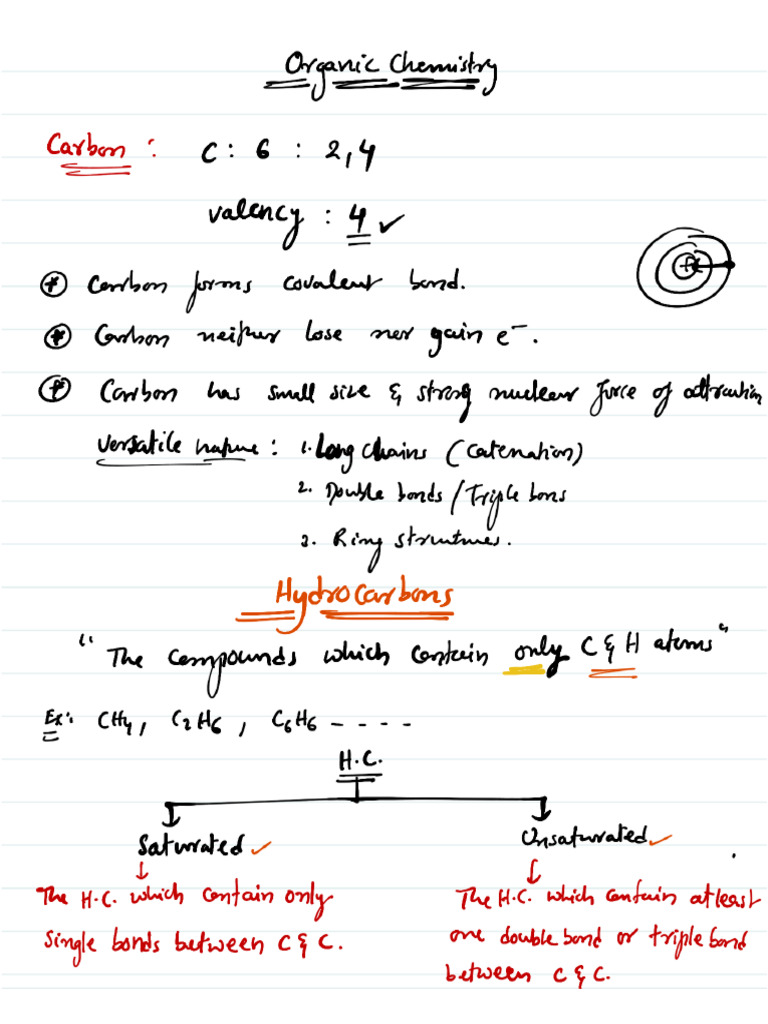 Organic Chemistry
Carbon : C : 6 : 2,4
valency : 4 ✓
* Carbon forms covalent bond.
* Carbon neither lose nor gain e⁻.
* Carbon has small size & strong nuclear force of attraction
Versatile nature : 1. Long chains (Catenation)
2. Double bonds / Triple bons
3. Ring structures.
Hydrocarbons
"The compounds which contain only C & H atoms"
Ex: CH4, C2H6, C6H6 - - - -
H.C.
Saturated ✓ Unsaturated ✓
The H.C. which contain only
single bonds between C & C.
The H.C. which contain atleast
one double bond or triple bond
between C & C.